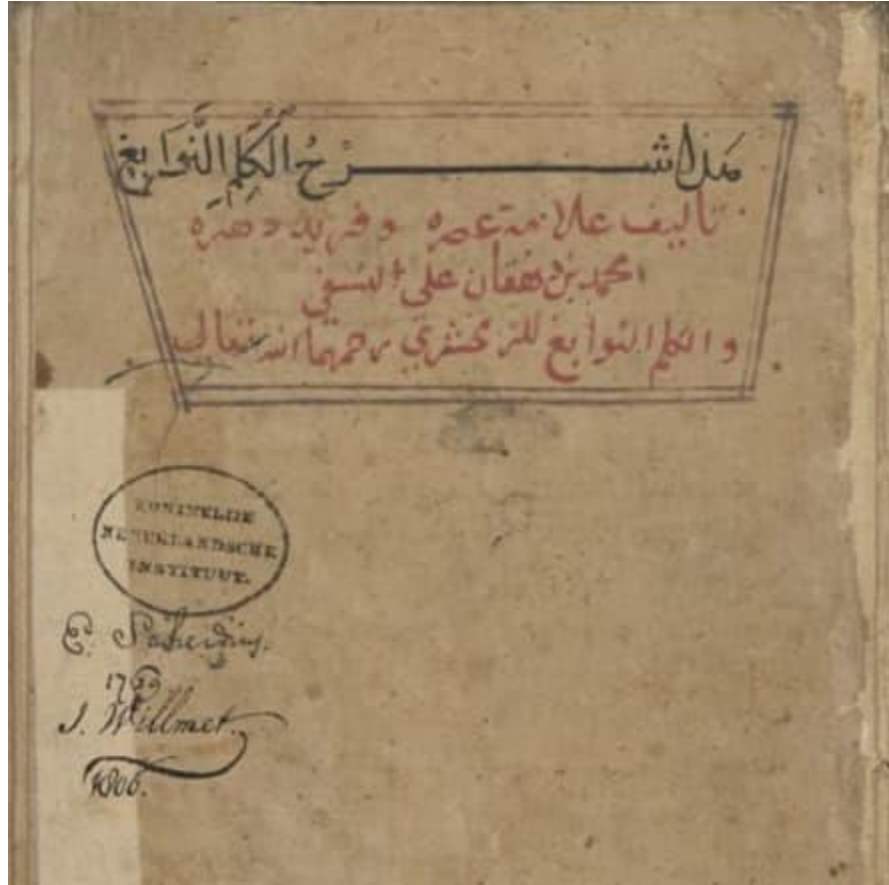 هذا شرح الكلم النوابغ
تأليف علامة عصره وفريد دهره
محمد بن دهقان علي النسفي
والكلم النوابغ للزمخشري رحمهما الله تعالى
KONINKLIJKE
NEDERLANDSCHE
INSTITUUT.
E. Scheidius.
J. Willmet.
1806.